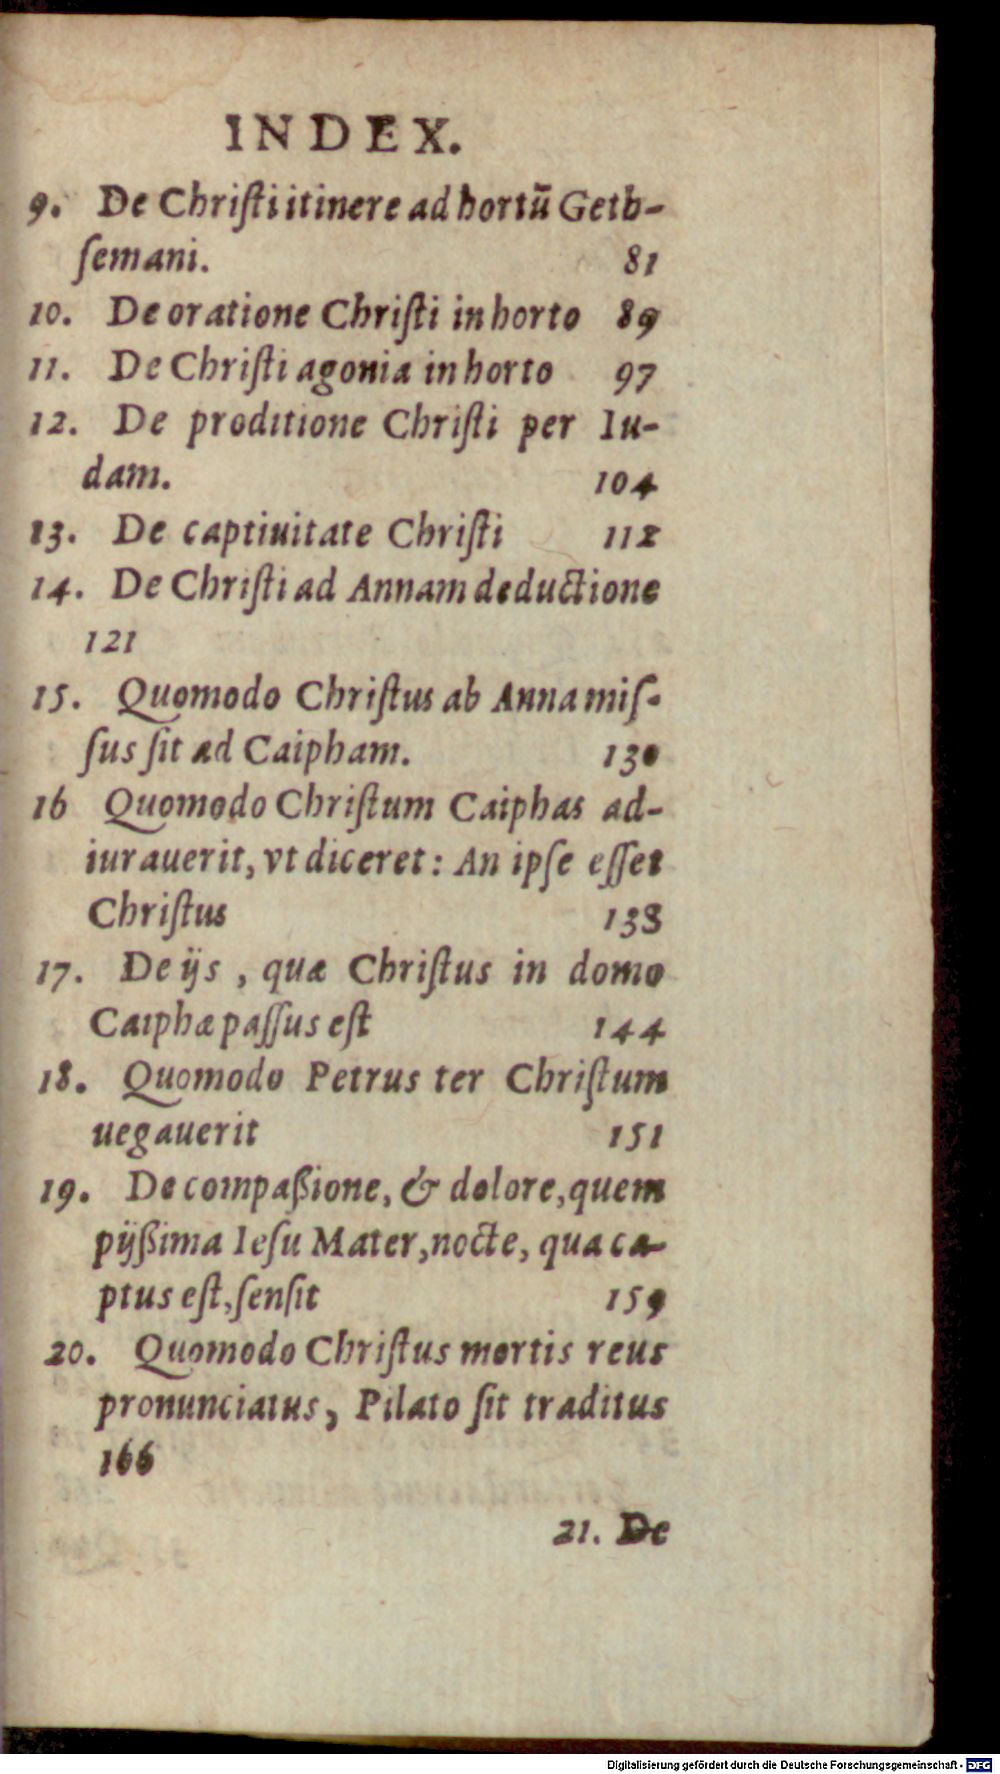 INDEX.
9. De Chriſti itinere ad hortū Geth-
ſemani. 81
10. De oratione Chriſti in horto 89
11. De Chriſti agonia in horto 97
12. De proditione Chriſti per Iu-
dam. 104
13. De captiuitate Chriſti 112
14. De Chriſti ad Annam deductione
121
15. Quomodo Chriſtus ab Anna miſ-
ſus ſit ad Caipham. 130
16 Quomodo Chriſtum Caiphas ad-
iurauerit, vt diceret: An ipſe eſſet
Chriſtus 138
17. De ijs, quæ Chriſtus in domo
Caiphæ paſſus eſt 144
18. Quomodo Petrus ter Chriſtum
uegauerit 151
19. De compaßione, & dolore, quem
pijßima Ieſu Mater, nocte, qua ca-
ptus eſt, ſenſit 159
20. Quomodo Chriſtus mortis reus
pronunciatus, Pilato ſit traditus
166
21. De
Digitalisierung gefördert durch die Deutsche Forschungsgemeinschaft - DFG